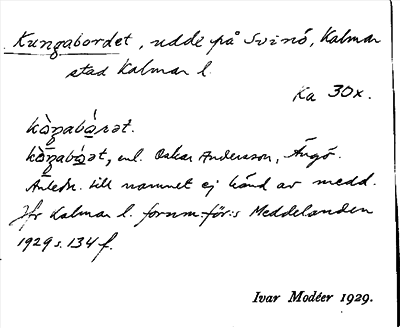 Kungabordet, udde på Svinö, Kalmar
stad Kalmar l.
Ka 30x.
enl. Oskar Andersson, Ängö.
Anledn. till namnet ej känd av medd.
Jfr Kalmar l. fornm.för:s Meddelanden
1929 s. 134 f.
Ivar Modéer 1929.